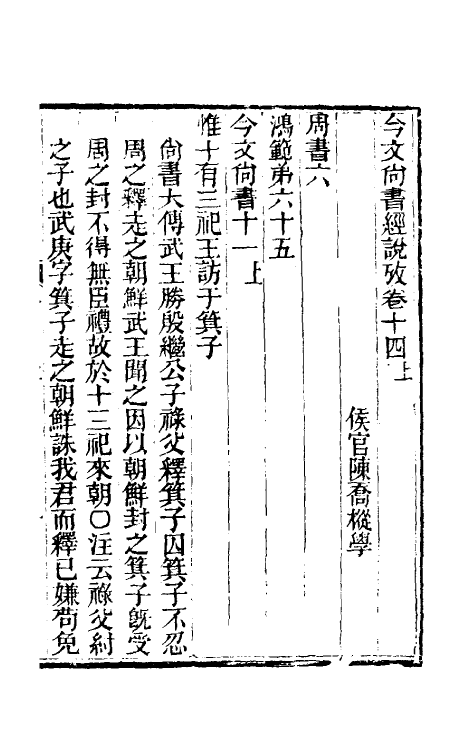 今文尙書經說攷卷十四上
侯官陳喬樅學
周書六
鴻範弟六十五
今文尙書十一上
惟十有三祀王訪于箕子
尙書大傳武王勝殷繼公子祿父釋箕子囚箕子不忍
周之釋走之朝鮮武王聞之因以朝鮮封之箕子旣受
周之封不得無臣禮故於十三祀來朝〇注云祿父紂
之子也武庚字箕子走之朝鮮誅我君而釋已嫌苟免